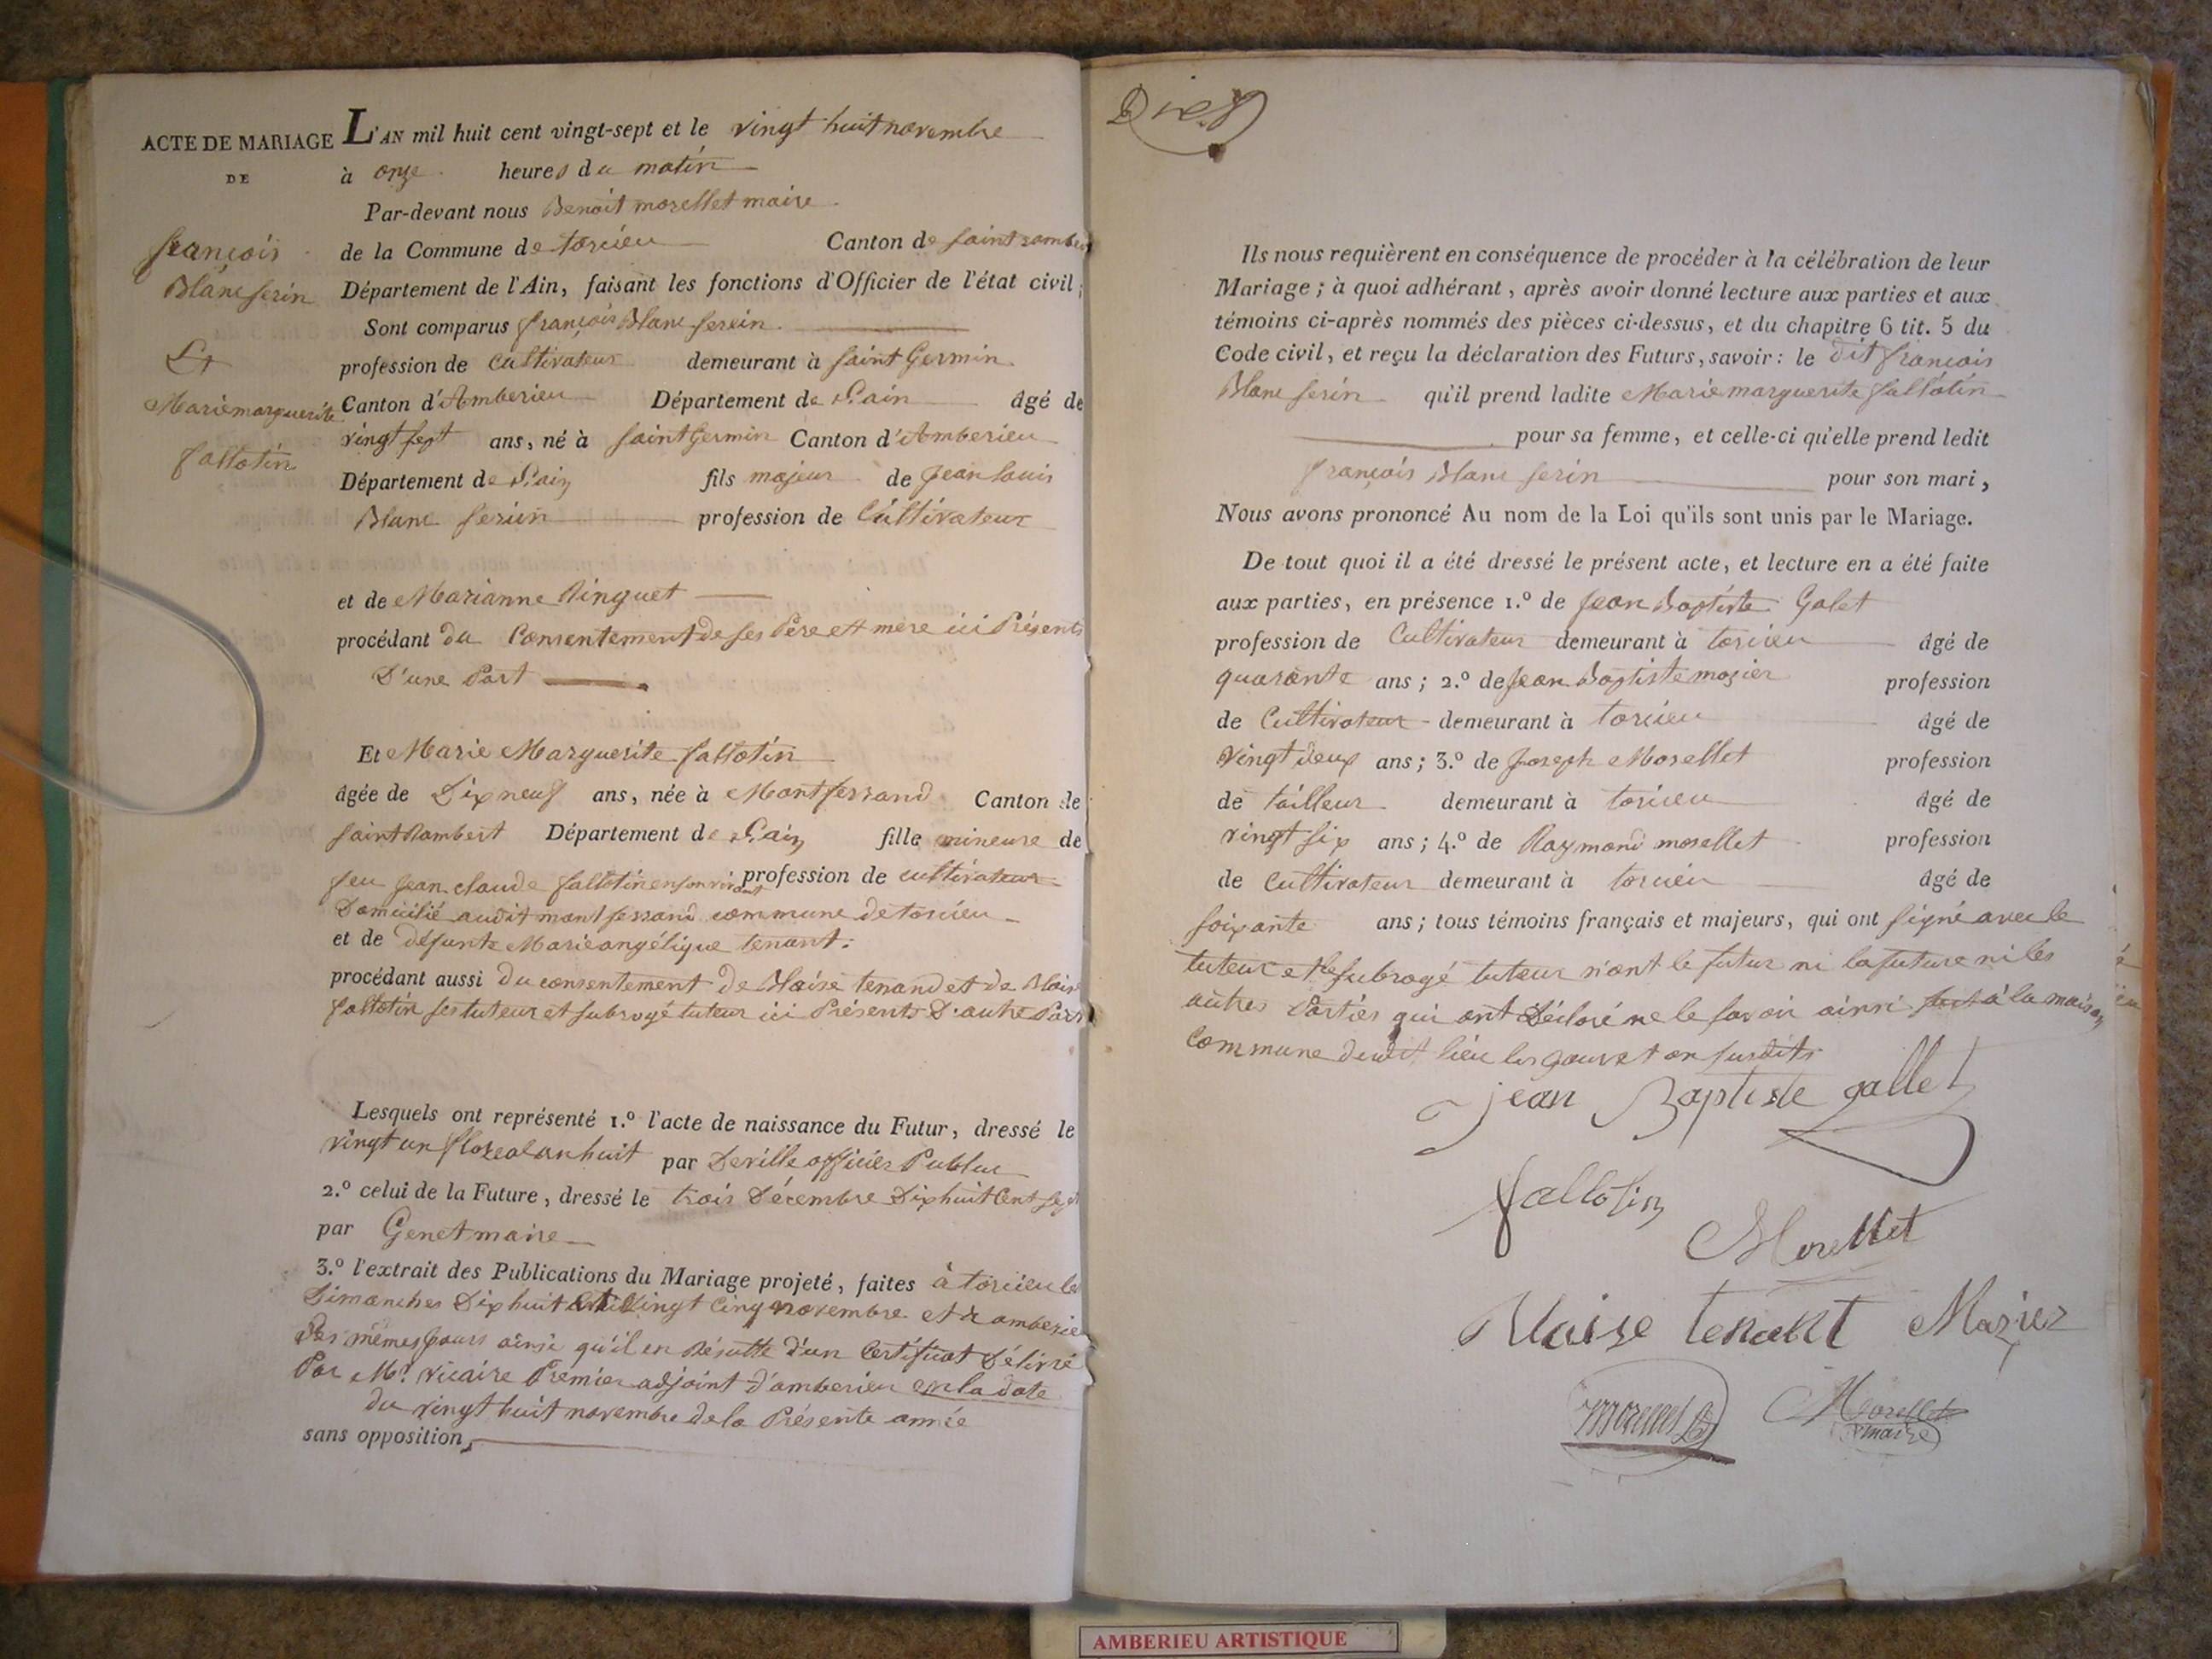 ACTE DE MARIAGE
DE
françois
Blanc serin
Et
Marie marguerite
fallotin
L'AN mil huit cent vingt-sept et le vingt huit novembre
à onze heures du matin
Par-devant nous Benoit morellet maire
de la Commune de torcieu Canton de saint rambert
Département de l'Ain, faisant les fonctions d'Officier de l'état civil;
Sont comparus françois Blanc serein
profession de Cultivateur demeurant à saint Germin
Canton d'Amberieu Département de L'ain âgé de
vingt sept ans, né à saint Germin Canton d'Amberieu
Département de L'ain fils majeur de Jean louis
Blanc serein profession de Cultivateur
et de Marianne Pinguet
procédant du Consentement de ses Père et mère ici Présents
D'une Part
Et Marie Marguerite fallotin
âgée de Dix neuf ans, née à Montferrand Canton de
saint Rambert Département de L'ain fille mineure de
feu jean claude fallotin en son vivant profession de cultivateur
Domicilié audit montferrand commune de torcieu
et de défunte Marie angélique tenant.
procédant aussi du consentement de Blaise tenand et de Blaise
fallotin ses tuteur et subrogé tuteur ici Présents D'autre Part
Lesquels ont représenté 1.º l'acte de naissance du Futur, dressé le
vingt un floreal an huit par Deville officier Public
2.º celui de la Future, dressé le trois Décembre Dix huit Cent sept
par Genet maire
3.º l'extrait des Publications du Mariage projeté, faites à torcieu les
Dimanches Dix huit et vingt Cinq novembre et à amberieu
les mêmes jours ainsi qu'il en Résulte d'un Certificat Délivré
Par Mr. vicaire Premier adjoint d'amberieu en la date
du vingt huit novembre de la Présente année
sans opposition,
Ils nous requièrent en conséquence de procéder à la célébration de leur
Mariage; à quoi adhérant, après avoir donné lecture aux parties et aux
témoins ci-après nommés des pièces ci-dessus, et du chapitre 6 tit. 5 du
Code civil, et reçu la déclaration des Futurs, savoir: le dit françois
Blanc serin qu'il prend ladite Marie marguerite fallotin
pour sa femme, et celle-ci qu'elle prend ledit
françois Blanc serin pour son mari,
Nous avons prononcé Au nom de la Loi qu'ils sont unis par le Mariage.
De tout quoi il a été dressé le présent acte, et lecture en a été faite
aux parties, en présence 1.º de Jean Baptiste Galet
profession de Cultivateur demeurant à torcieu âgé de
quarante ans; 2.º de Jean Baptiste mazier profession
de Cultivateur demeurant à torcieu âgé de
vingt deux ans; 3.º de Joseph Morellet profession
de tailleur demeurant à torcieu âgé de
vingt six ans; 4.º de Raymond morellet profession
de Cultivateur demeurant à torcieu âgé de
soixante ans; tous témoins français et majeurs, qui ont signé avec le
tuteur et le subrogé tuteur n'ont le futur ni la future ni les
autres Parties qui ont Déclaré ne le savoir ainsi fait à la maison
Commune dudit lieu les jour et an susdits
jean Baptiste gallet
fallotin
Morellet
Blaise tenant Mazier
morellet
Morellet
maire
AMBERIEU ARTISTIQUE